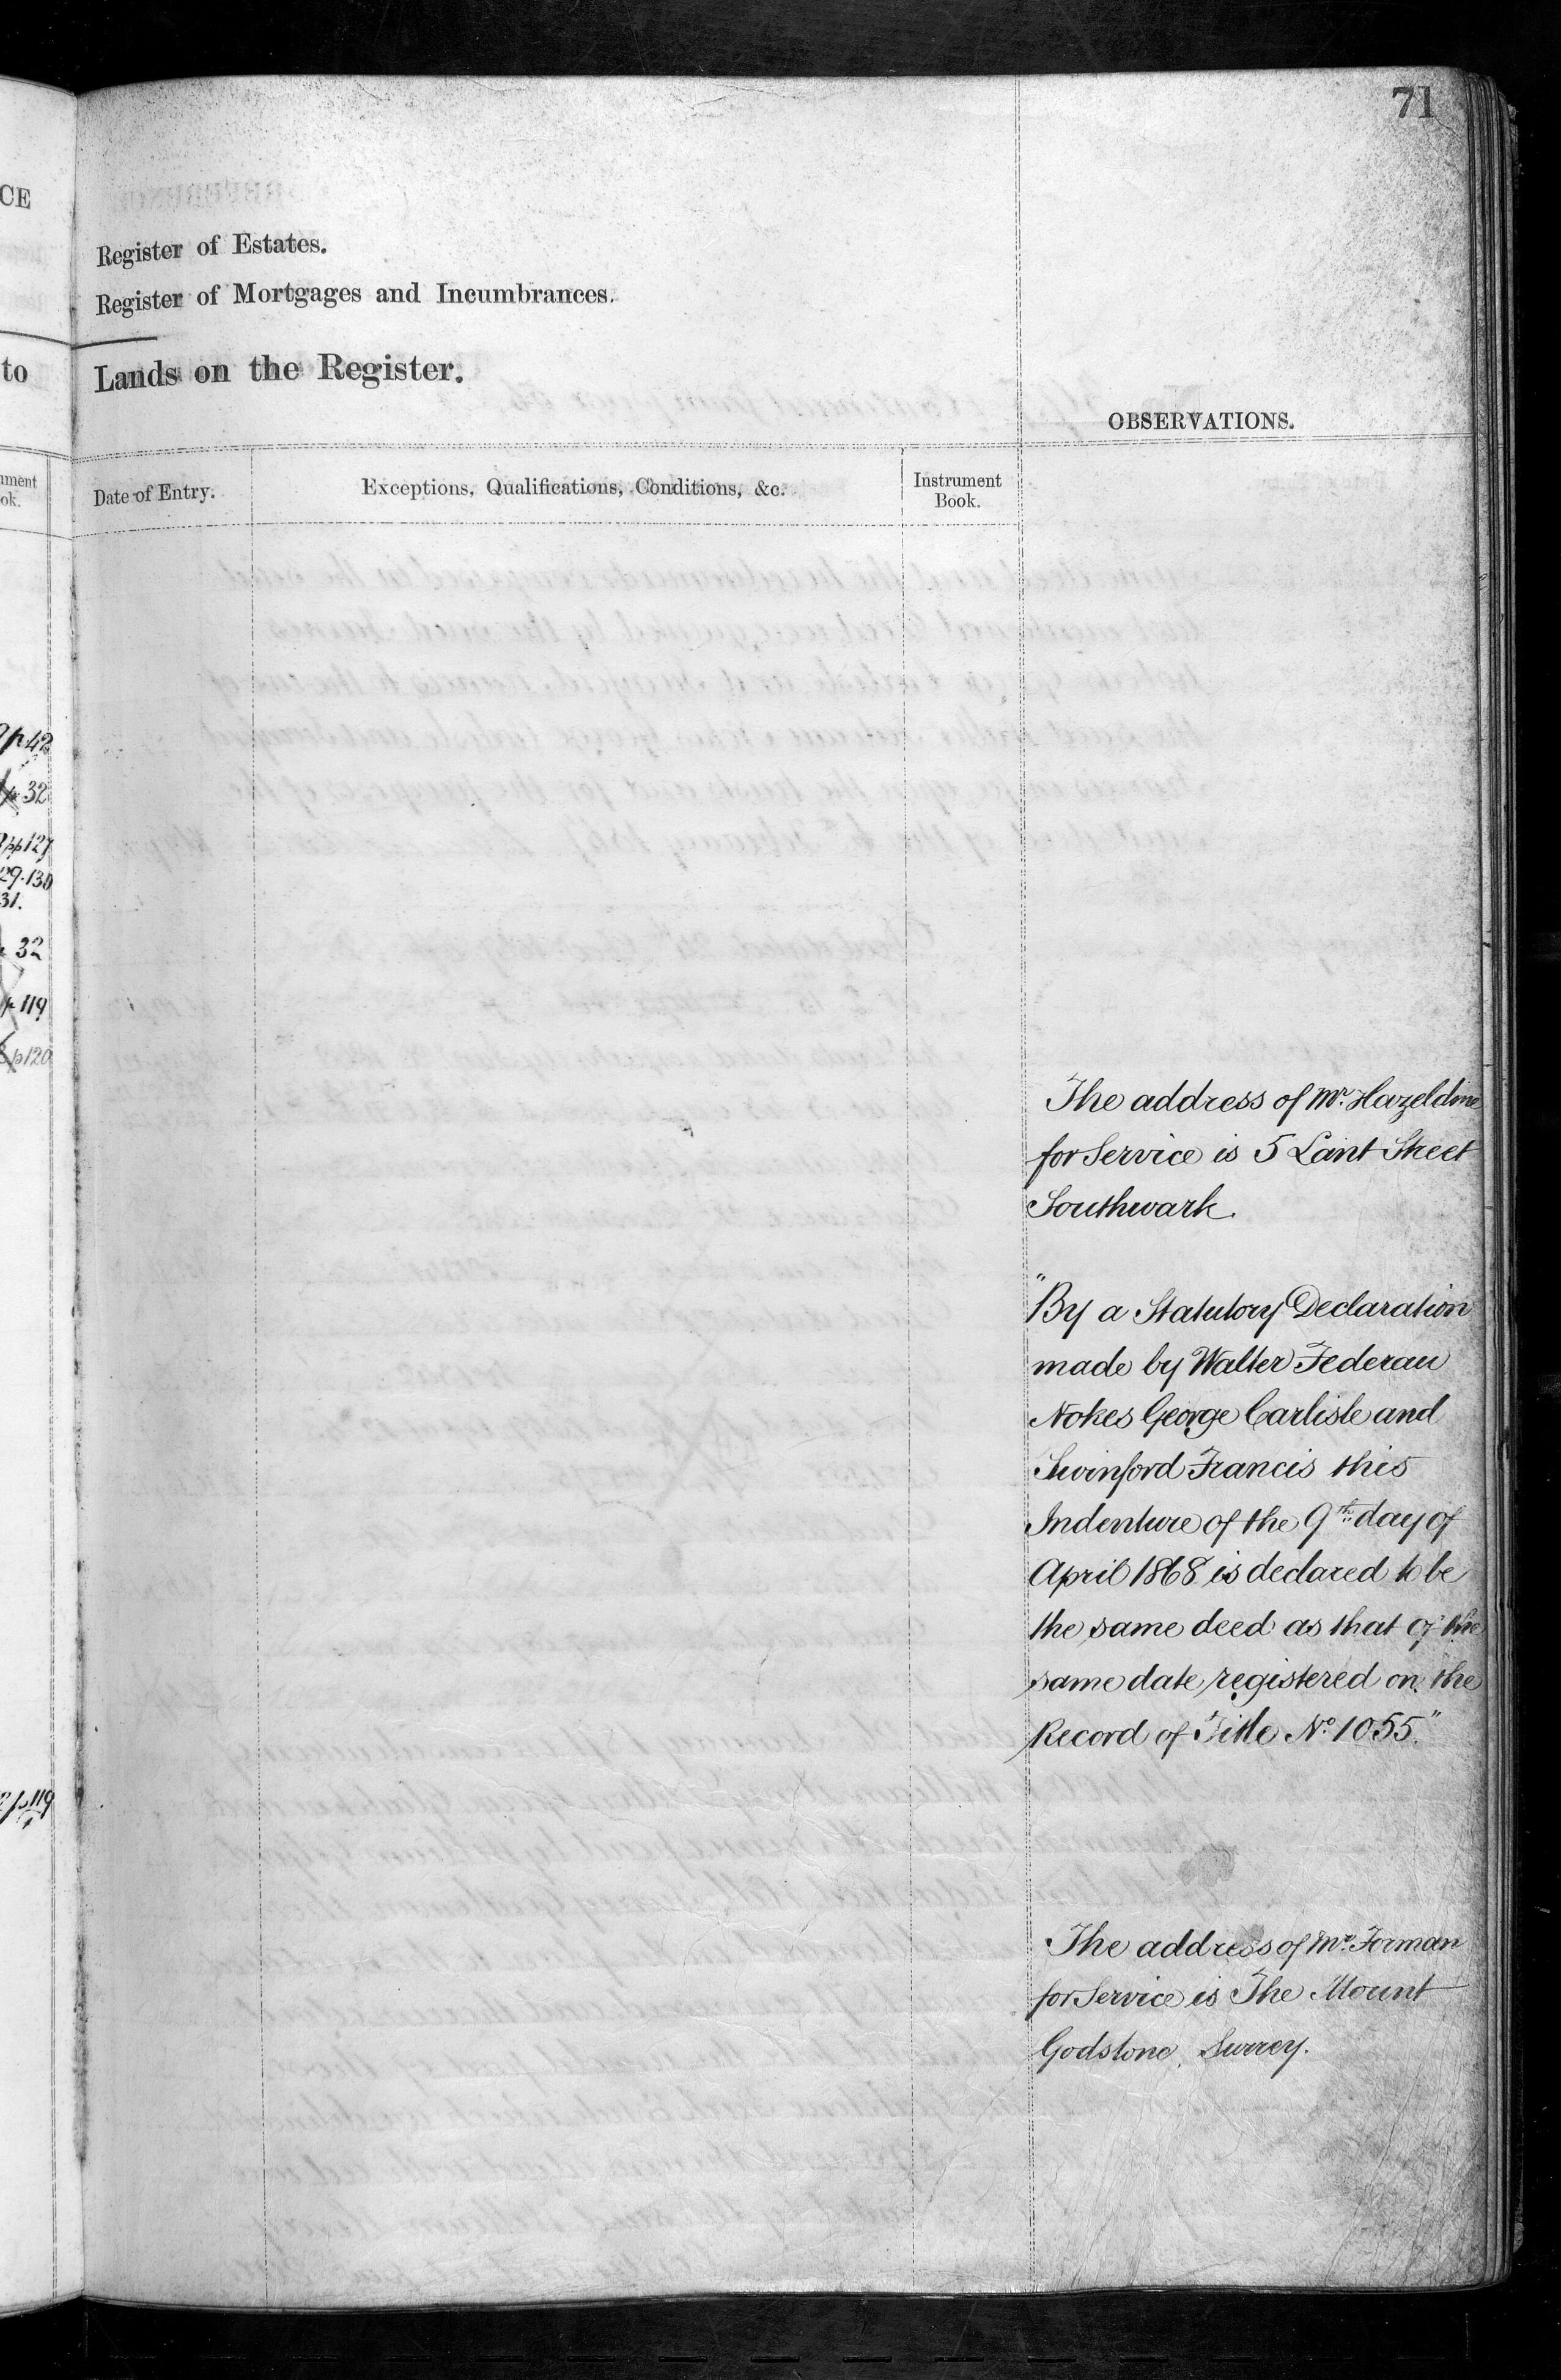 71
CE
Register of Estates.
Register of Mortgages and Incumbrances.
to
Lands on the Register.
OBSERVATIONS.
Date of Entry.
Exceptions, Qualifications, Conditions, &c.
Instrument
Book.
ument
ok.
p 42
p 32
pp 127
29.130
31.
32
p 119
p 120
The address of Mr. Hazeldine
for Service is 5 Lant Street
Southwark.
"By a Statutory Declaration
made by Walter Federau
Nokes George Carlisle and
Swinford Francis this
Indenture of the 9th day of
April 1868 is declared to be
the same deed as that of the
same date registered on the
Record of Title No. 1055."
p 119
The address of Mr. Forman
for Service is The Mount
Godstone, Surrey.